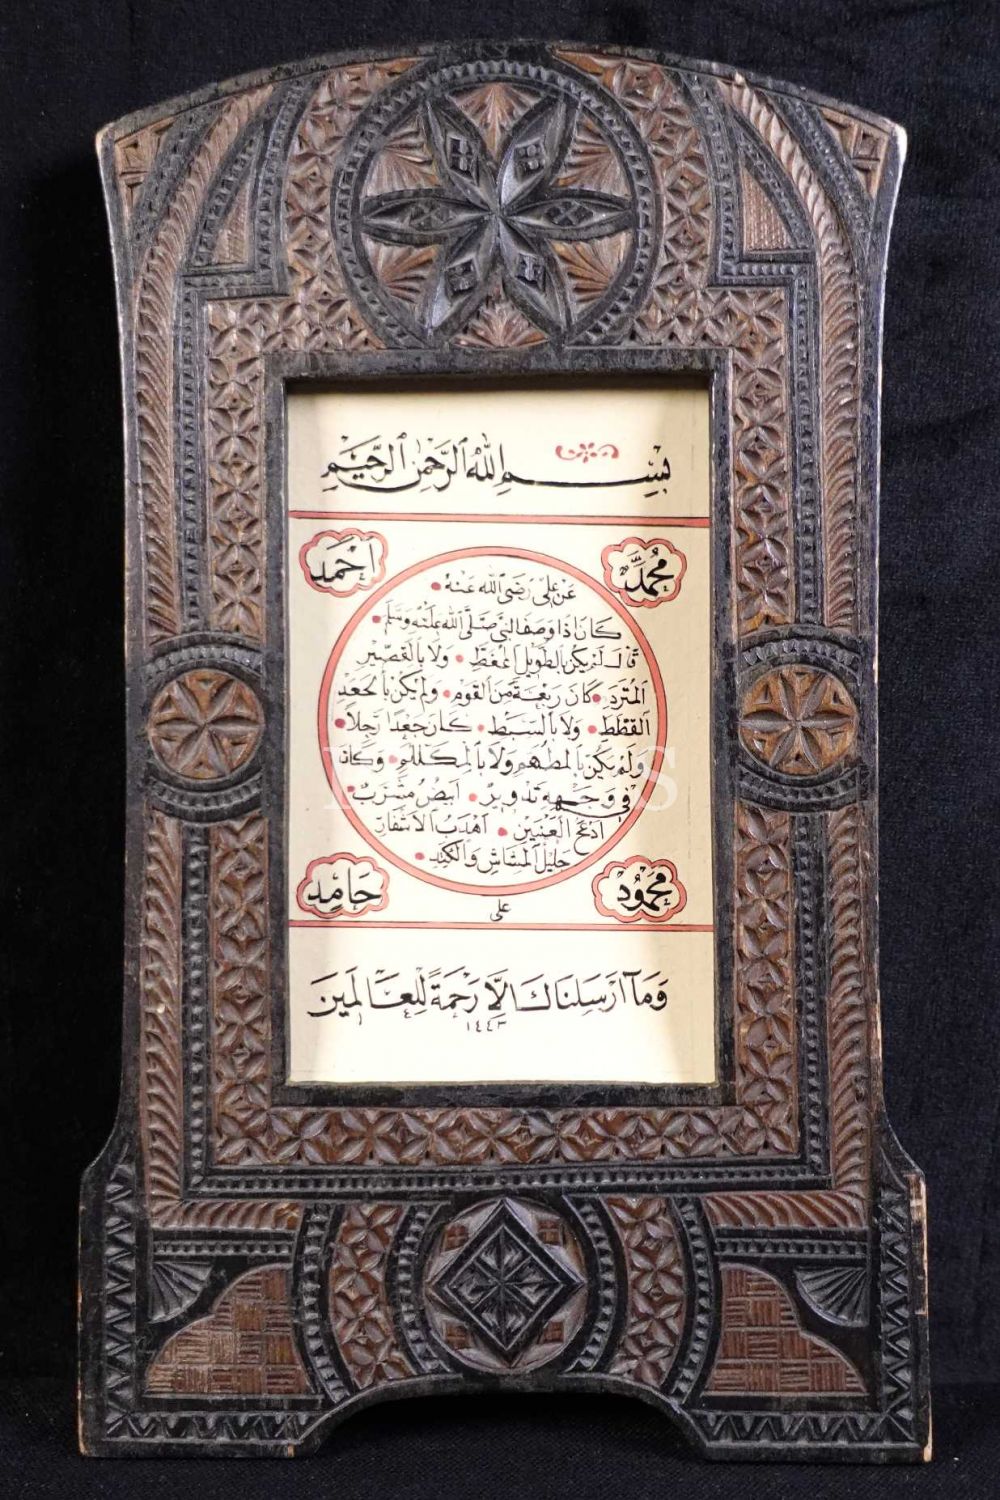 بِسْمِ اللهِ الرَّحْمٰنِ الرَّحِيْمِ
مُحَمَّدْ
اَحْمَدْ
عَنْ عَلِى رَضِىَ اللهُ عَنْهُ
كَانَ اِذَا وَصَفَ النَّبِىَّ صَلَّى اللهُ عَلَيْهِ وَسَلَّمَ
قَالَ لَمْ يَكُنْ بِالطَّوِيْلِ الْمُمَّغِطِ وَلَا بِالْقَصِيْرِ
الْمُتَرَدِّدِ كَانَ رَبْعَةً مِنَ الْقَوْمِ وَلَمْ يَكُنْ بِالْجَعْدِ
الْقَطَطِ وَلَا بِالسَّبِطِ كَانَ جَعْدًا رَجِلًا
وَلَمْ يَكُنْ بِالْمُطَهَّمِ وَلَا بِالْمُكَلْثَمِ وَكَانَ
فِى وَجْهِهِ تَدْوِيرٌ اَبْيَضُ مُشْرَبٌ
اَدْعَجُ الْعَيْنَيْنِ اَهْدَبُ الْاَشْفَارِ
جَلِيْلُ الْمُشَاشِ وَالْكَتَدِ
مَحْمُودْ
حَامِدْ
على
وَمَآ اَرْسَلْنَاكَ اِلَّا رَحْمَةً لِلْعَالَمِينَ
١٤٤٣